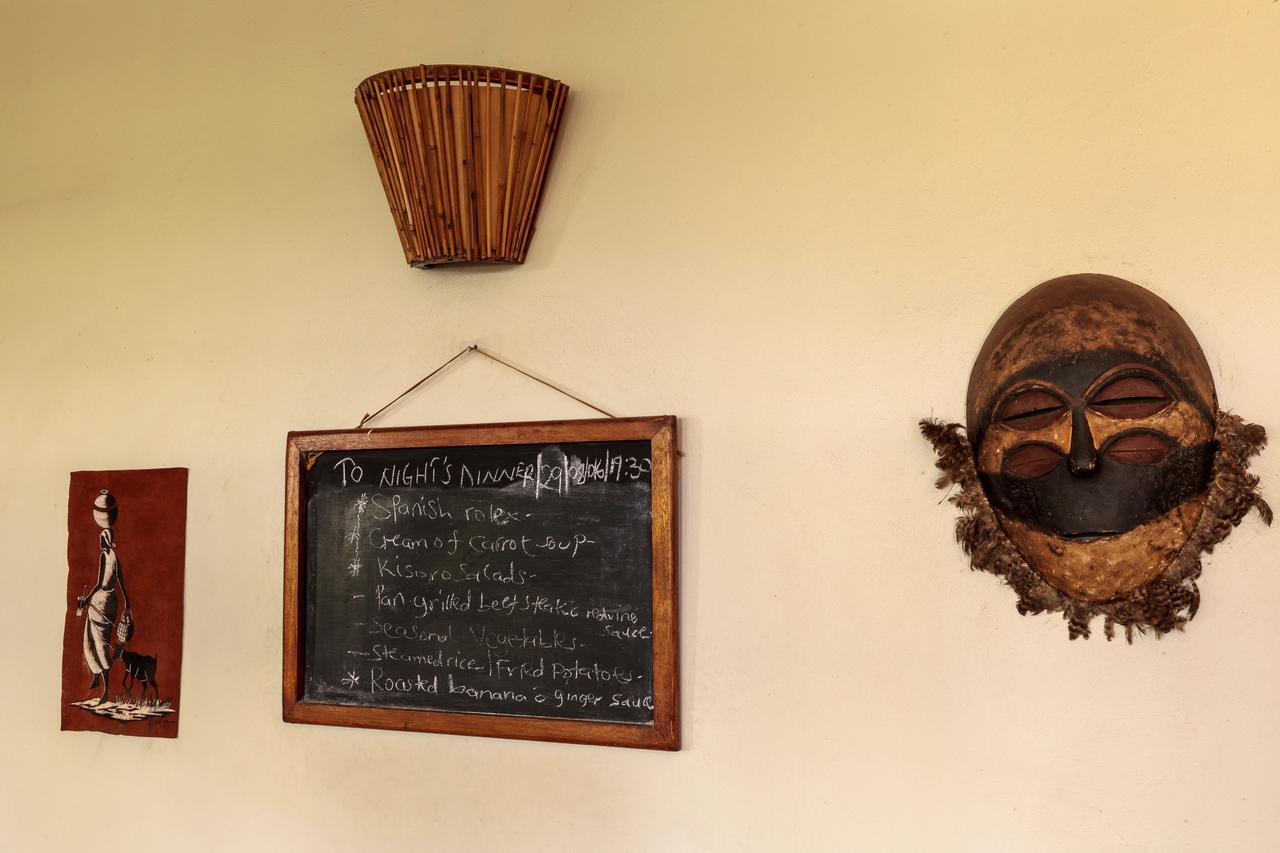 TO NIGHT'S DINNER
* Spanish rolex-
* Cream of carrot soup-
* Kisoro Salads-
- Pan grilled beef steak
sauce-
- Seasonal Vegetables-
- Steamed rice / Fried Potatoes-
* Roasted banana ginger sauce